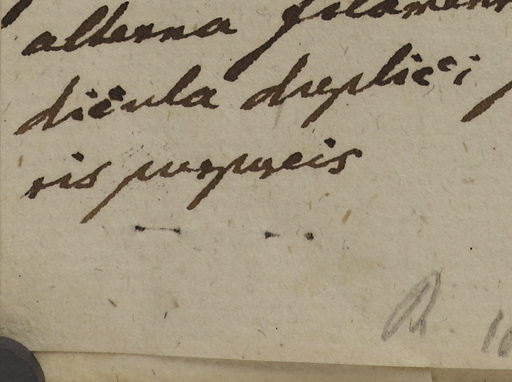 alterna filamen
dicula duplici
ris purpureis
R. 10